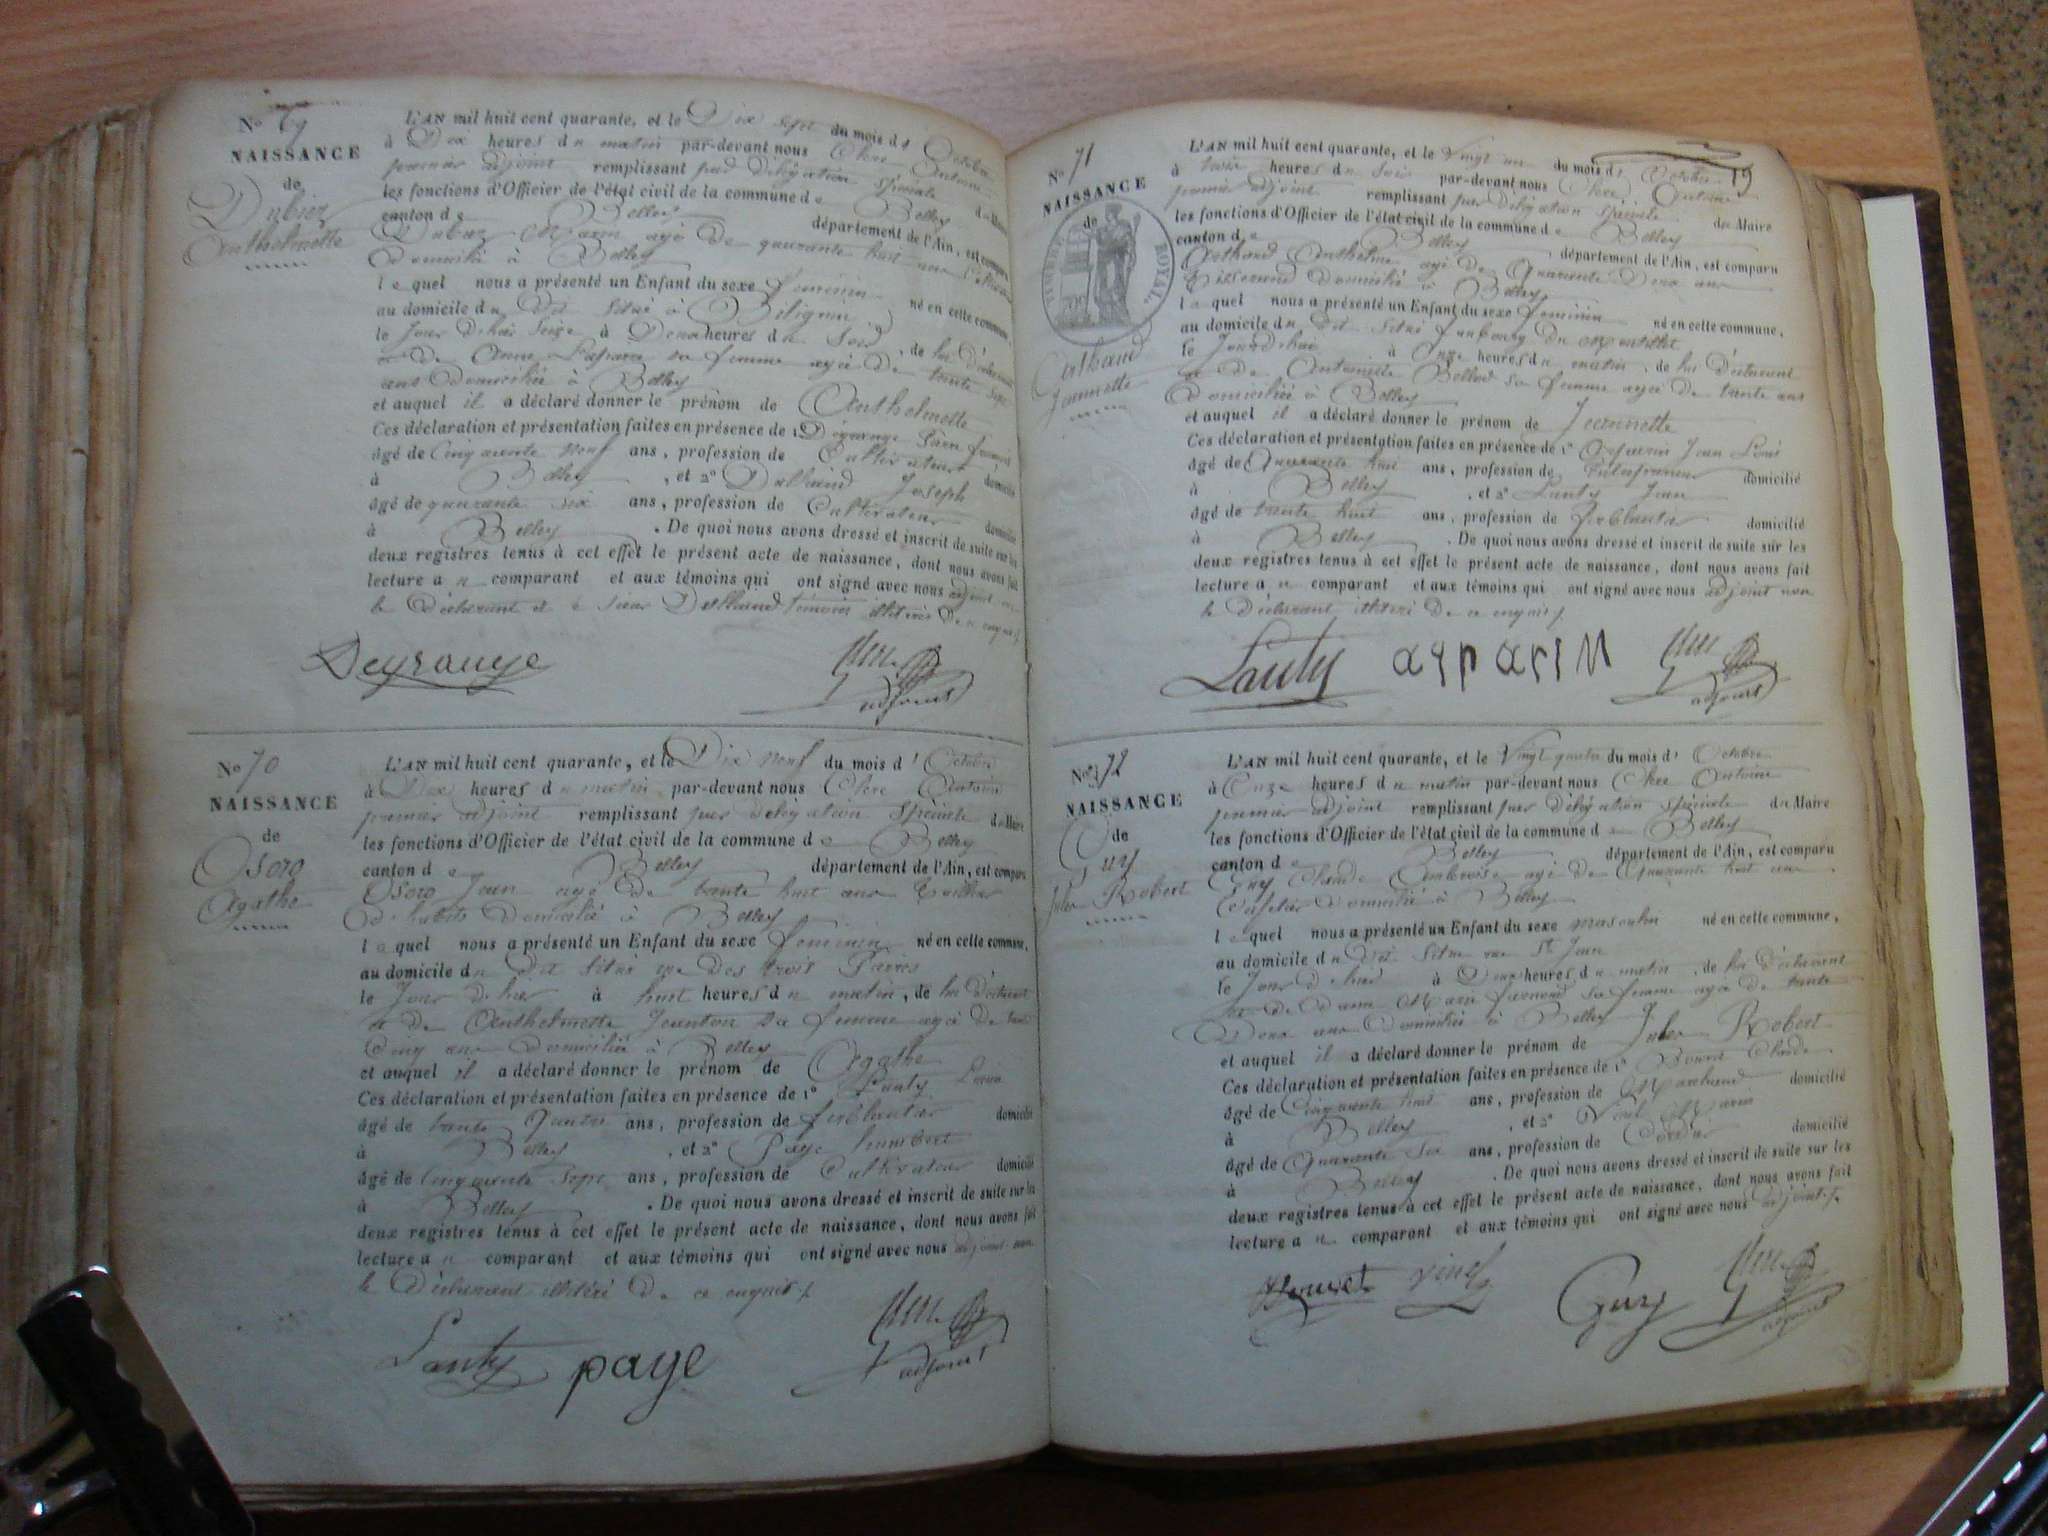 No 69
NAISSANCE
de
Dubiez
Anthelmette
L'AN mil huit cent quarante, et le Dix sept du mois d' Octobre
à Dix heures du matin par-devant nous Chere Antoine
premier adjoint remplissant par délégation spéciale du Maire
les fonctions d'Officier de l'état civil de la commune de Belley
canton de Belley département de l'Ain, est comparu
Marin agé de quarante huit ans
domicilié à Belley
lequel nous a présenté un Enfant du sexe féminin né en cette commune,
au domicile du dit situé à Billignin
le jour d'hier seize à heures du soir, de lui déclarant
et de Anne sa femme agée de trente sept
ans domiciliée à Belley
et auquel il a déclaré donner le prénom de Anthelmette
Ces déclaration et présentation faites en présence de 1° Deyrauge
âgé de Cinquante neuf ans, profession de Cultivateur domicilié
à Belley, et 2° Joseph
âgé de quarante six ans, profession de Cultivateur domicilié
à Belley. De quoi nous avons dressé et inscrit de suite sur les
deux registres tenus à cet effet le présent acte de naissance, dont nous avons fait
lecture au comparant et aux témoins qui ont signé avec nous adjoint non
le Déclarant et le sieur témoins illitérés de ce enquis
Deyrauge Chere adjoint
No 70
NAISSANCE
de
Osoro
Agathe
L'AN mil huit cent quarante, et le Dix neuf du mois d' Octobre
à Dix heures du matin par-devant nous Chere Antoine
premier adjoint remplissant par délégation spéciale du Maire
les fonctions d'Officier de l'état civil de la commune de Belley
canton de Belley département de l'Ain, est comparu
Osoro Jean agé de trente huit ans Tailleur
d'habits domicilié à Belley
lequel nous a présenté un Enfant du sexe féminin né en cette commune,
au domicile du dit situé rue des trois
le jour d'hier à huit heures du matin, de lui déclarant
et de Anthelmette sa femme agée de trente
Cinq ans domiciliée à Belley
et auquel il a déclaré donner le prénom de Agathe
Ces déclaration et présentation faites en présence de 1° Lauty Louis
âgé de trente quatre ans, profession de ferblantier domicilié
à Belley, et 2° Paye humbert
âgé de Cinquante Sept ans, profession de Cultivateur domicilié
à Belley. De quoi nous avons dressé et inscrit de suite sur les
deux registres tenus à cet effet le présent acte de naissance, dont nous avons fait
lecture au comparant et aux témoins qui ont signé avec nous adjoint non
le Déclarant illitéré de ce enquis
Lauty paye Chere adjoint
19
No 71
NAISSANCE
de
TIMBRE ROYAL
Jeannette
L'AN mil huit cent quarante, et le Vingt un du mois d' Octobre
à trois heures du soir par-devant nous Chere Antoine
premier adjoint remplissant par délégation spéciale du Maire
les fonctions d'Officier de l'état civil de la commune de Belley
canton de Belley département de l'Ain, est comparu
Anthelme agé de Quarante Deux ans
Tisserand domicilié à Belley
lequel nous a présenté un Enfant du sexe féminin né en cette commune,
au domicile du dit situé faubourg du
le Jourd'hui à Onze heures du matin, de lui déclarant
et de Antoinette sa femme agée de trente ans
domiciliée à Belley
et auquel il a déclaré donner le prénom de Jeannette
Ces déclaration et présentation faites en présence de 1° Asparin Jean Louis
âgé de Quarante huit ans, profession de domicilié
à Belley, et 2° Lauty Jean
âgé de trente huit ans, profession de ferblantier domicilié
à Belley. De quoi nous avons dressé et inscrit de suite sur les
deux registres tenus à cet effet le présent acte de naissance, dont nous avons fait
lecture au comparant et aux témoins qui ont signé avec nous adjoint non
le Déclarant illitéré de ce enquis
Lauty asparin Chere adjoint
No 72
NAISSANCE
de
Guy
Jules Robert
L'AN mil huit cent quarante, et le Vingt quatre du mois d' Octobre
à Onze heures du matin par-devant nous Chere Antoine
premier adjoint remplissant par délégation spéciale du Maire
les fonctions d'Officier de l'état civil de la commune de Belley
canton de Belley département de l'Ain, est comparu
Guy Claude Ambroise agé de Quarante huit ans
domicilié à Belley
lequel nous a présenté un Enfant du sexe masculin né en cette commune,
au domicile du dit situé rue St Jean
le Jour d'hier à heures du matin, de lui déclarant
et de dame Marie sa femme agée de trente
Deux ans domiciliée à Belley
et auquel il a déclaré donner le prénom de Jules Robert
Ces déclaration et présentation faites en présence de 1° Claude
âgé de Cinquante huit ans, profession de Marchand domicilié
à Belley, et 2° Vinel Marin
âgé de Quarante Six ans, profession de Cordier domicilié
à Belley. De quoi nous avons dressé et inscrit de suite sur les
deux registres tenus à cet effet le présent acte de naissance, dont nous avons fait
lecture au comparant et aux témoins qui ont signé avec nous adjoint
Vinel Guy Chere adjoint